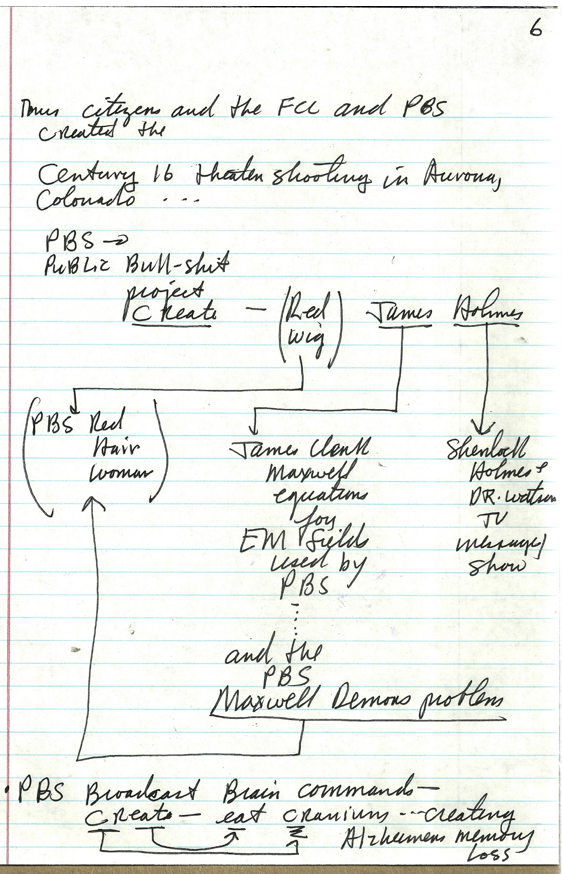 6
Thus citizens and the FCC and PBS
created the
Century 16 theater shooting in Aurora,
Colorado ...
PBS →
Public Bull-shit
project
Create — (Red wig) James Holmes
(PBS Red
Hair
woman)
James Clerk
Maxwell
equations
for
EM fields
used by
PBS
and the
PBS
Maxwell Demons problem
Sherlock
Holmes &
DR. Watson
TV
messages/
show
• PBS Broadcast Brain commands —
Create — eat craniums ... creating
Alzheimers memory
loss